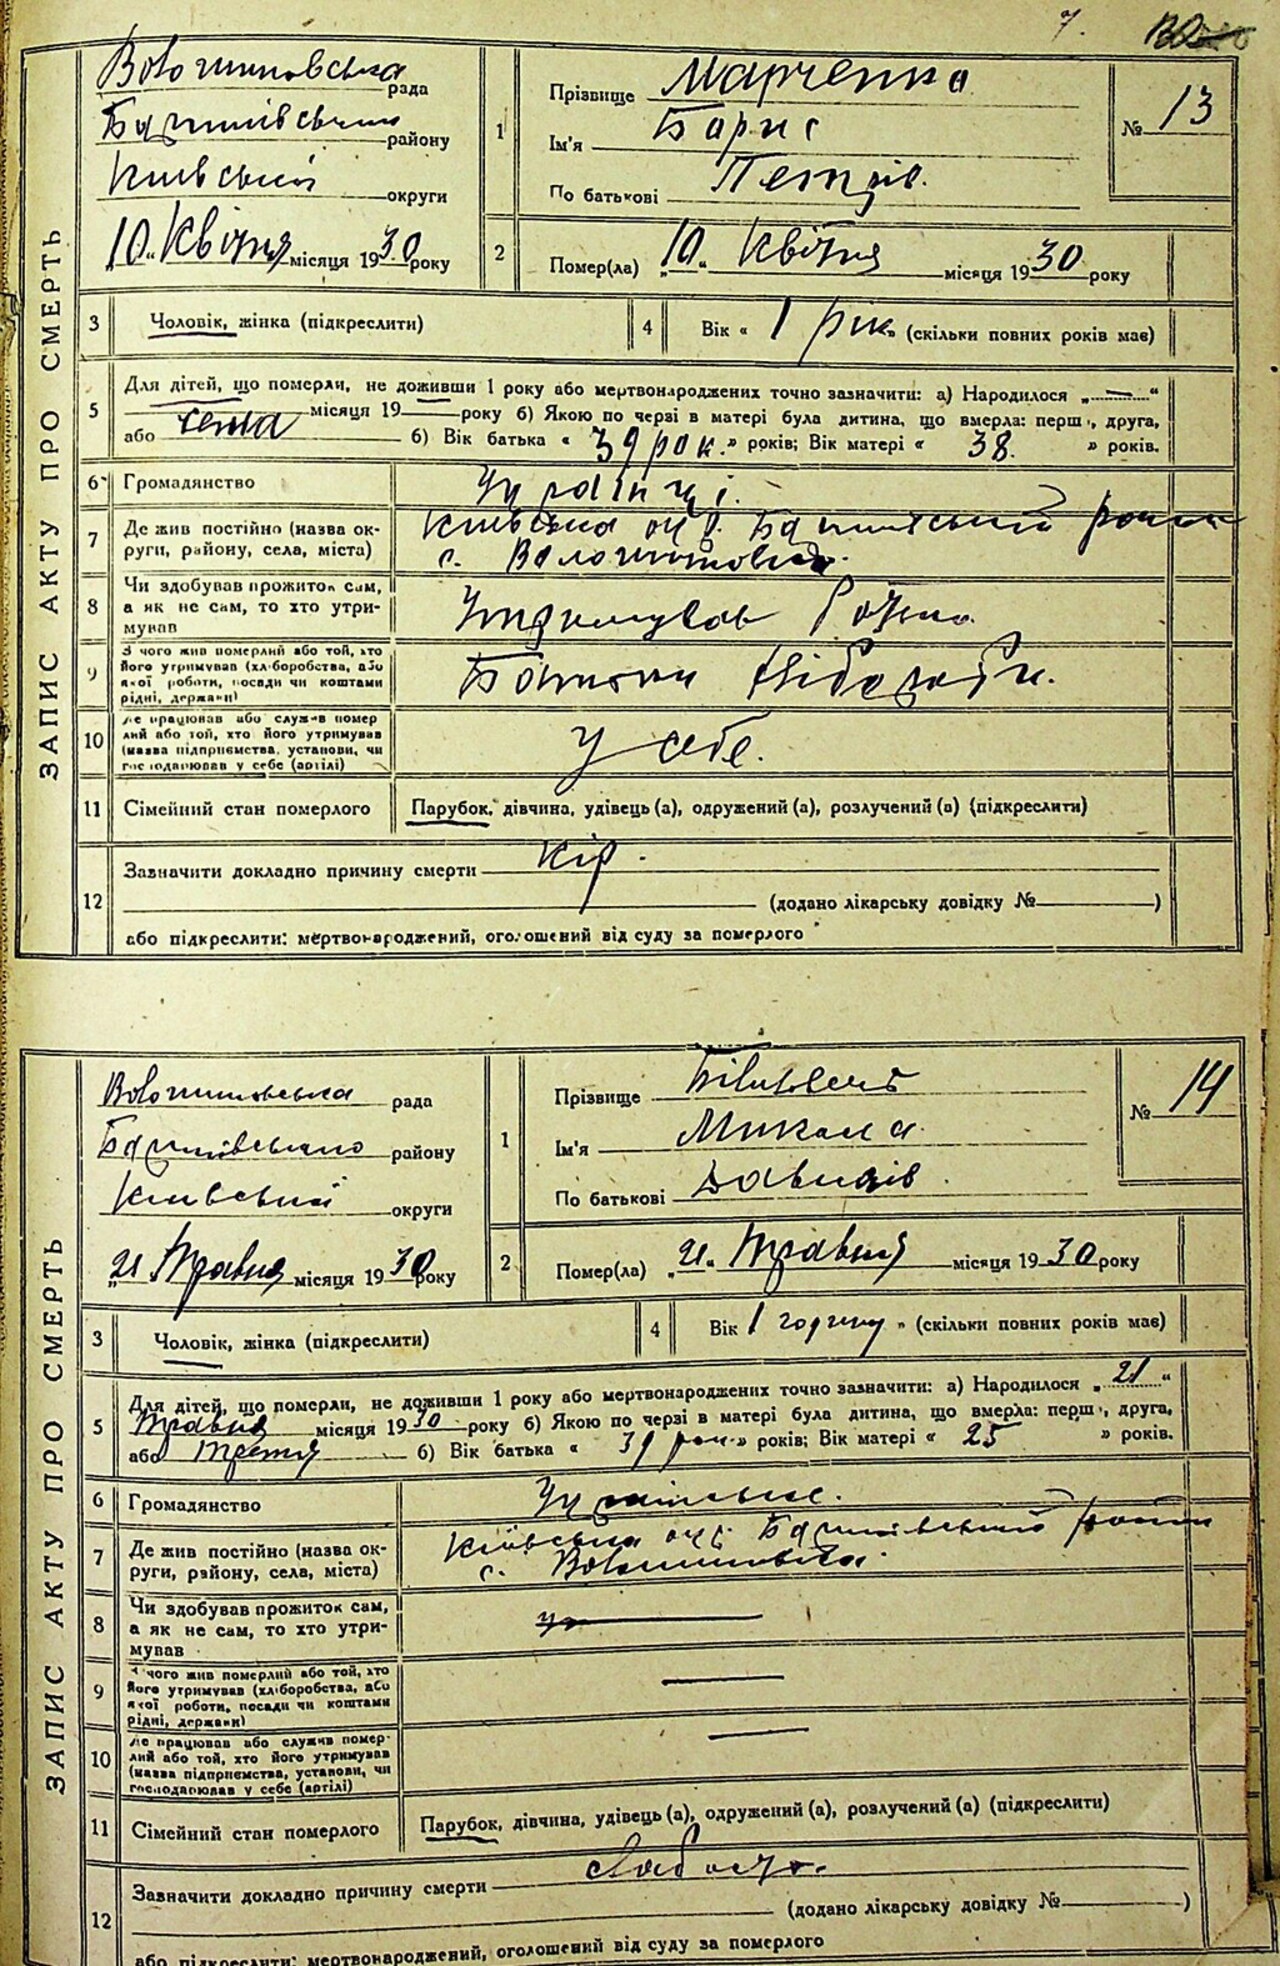 7.
ЗАПИС АКТУ ПРО СМЕРТЬ
Волошиновська рада
Баришівського району
Київської округи
"10" Квітня місяця 1930 року
1
Прізвище Марченко
Ім'я Борис
По батькові Петрів.
№ 13
2
Помер(ла) "10" Квітня місяця 1930 року
3 Чоловік, жінка (підкреслити)
4 Вік « 1 рік » (скільки повних років має)
5 Для дітей, що померли, не доживши 1 року або мертвонароджених точно зазначити: а) Народилося „ — “
місяця 19 року б) Якою по черзі в матері була дитина, що вмерла: перша, друга,
або сема б) Вік батька « 39 рок. » років; Вік матері « 38. » років.
6 Громадянство
7 Де жив постійно (назва округи, району, села, міста) Київська окр. Баришівський район
с. Волошиновка.
8 Чи здобував прожиток сам, а як не сам, то хто утримував Утримував
9 З чого жив померлий або той, хто його утримував (хліборобства, або якої роботи, посади чи коштами рідні, держави) Хлібороби.
10 Де працював або служив померлий або той, хто його утримував (назва підприємства, установи, чи господарював у себе (артілі) У себе.
11 Сімейний стан померлого Парубок, дівчина, удівець (а), одружений (а), розлучений (а) (підкреслити)
12 Зазначити докладно причину смерти Кір.
(додано лікарську довідку № )
або підкреслити: мертвонароджений, оголошений від суду за померлого
ЗАПИС АКТУ ПРО СМЕРТЬ
Волошиновська рада
Баришівського району
Київської округи
"21" Травня місяця 1930 року
1
Прізвище
Ім'я Микола
По батькові Давидів.
№ 14
2
Помер(ла) "21" Травня місяця 1930 року
3 Чоловік, жінка (підкреслити)
4 Вік 1 годину » (скільки повних років має)
5 Для дітей, що померли, не доживши 1 року або мертвонароджених точно зазначити: а) Народилося „ 21 “
Травня місяця 1930 року б) Якою по черзі в матері була дитина, що вмерла: перша, друга,
або третя б) Вік батька « 31 рок » років; Вік матері « 25 » років.
6 Громадянство
7 Де жив постійно (назва округи, району, села, міста) Київська окр. Баришівський район
с. Волошиновка.
8 Чи здобував прожиток сам, а як не сам, то хто утримував
9 З чого жив померлий або той, хто його утримував (хліборобства, або якої роботи, посади чи коштами рідні, держави) —
10 Де працював або служив померлий або той, хто його утримував (назва підприємства, установи, чи господарював у себе (артілі) —
11 Сімейний стан померлого Парубок, дівчина, удівець (а), одружений (а), розлучений (а) (підкреслити)
12 Зазначити докладно причину смерти
(додано лікарську довідку № )
або підкреслити: мертвонароджений, оголошений від суду за померлого